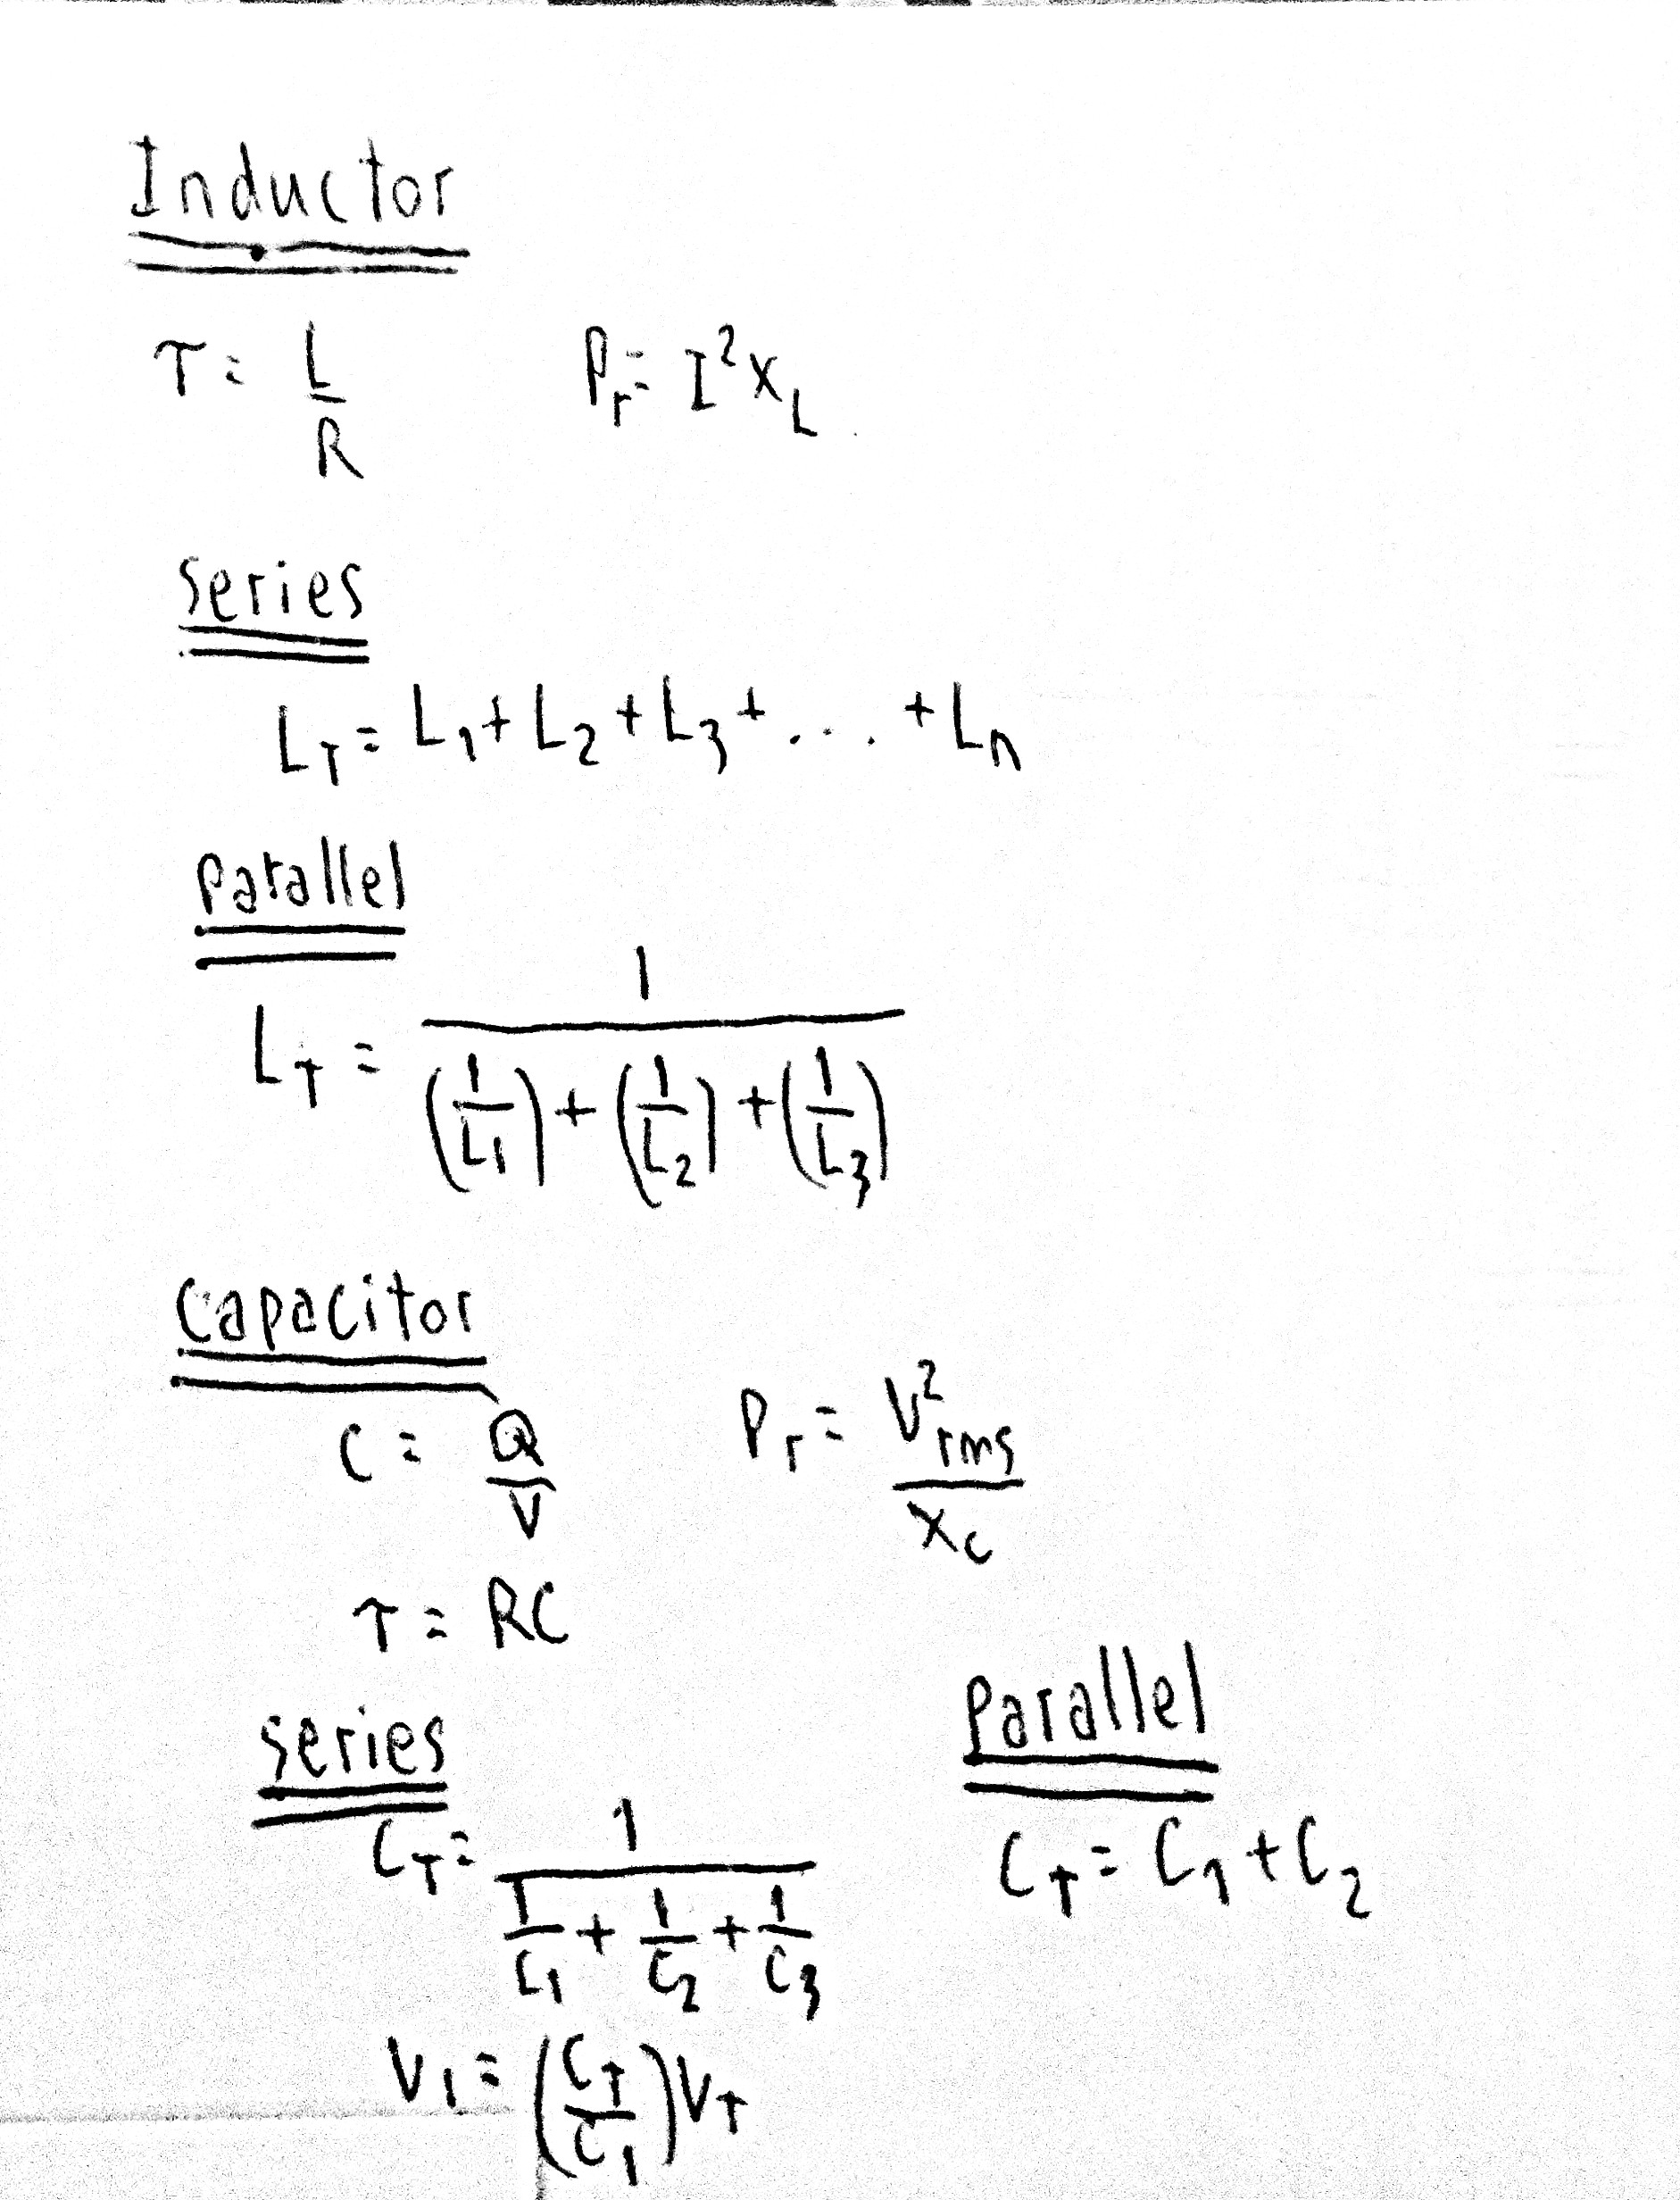 Inductor
τ = L/R    P_r = I²X_L
Series
L_T = L_1 + L_2 + L_3 + .... + L_n
Parallel
L_T = 1/((1/L_1) + (1/L_2) + (1/L_3))
Capacitor
C = Q/V    P_r = V²_rms/X_C
τ = RC
Series
C_T = 1/(1/C_1 + 1/C_2 + 1/C_3)
V_1 = (C_T/C_1)V_T
Parallel
C_T = C_1 + C_2